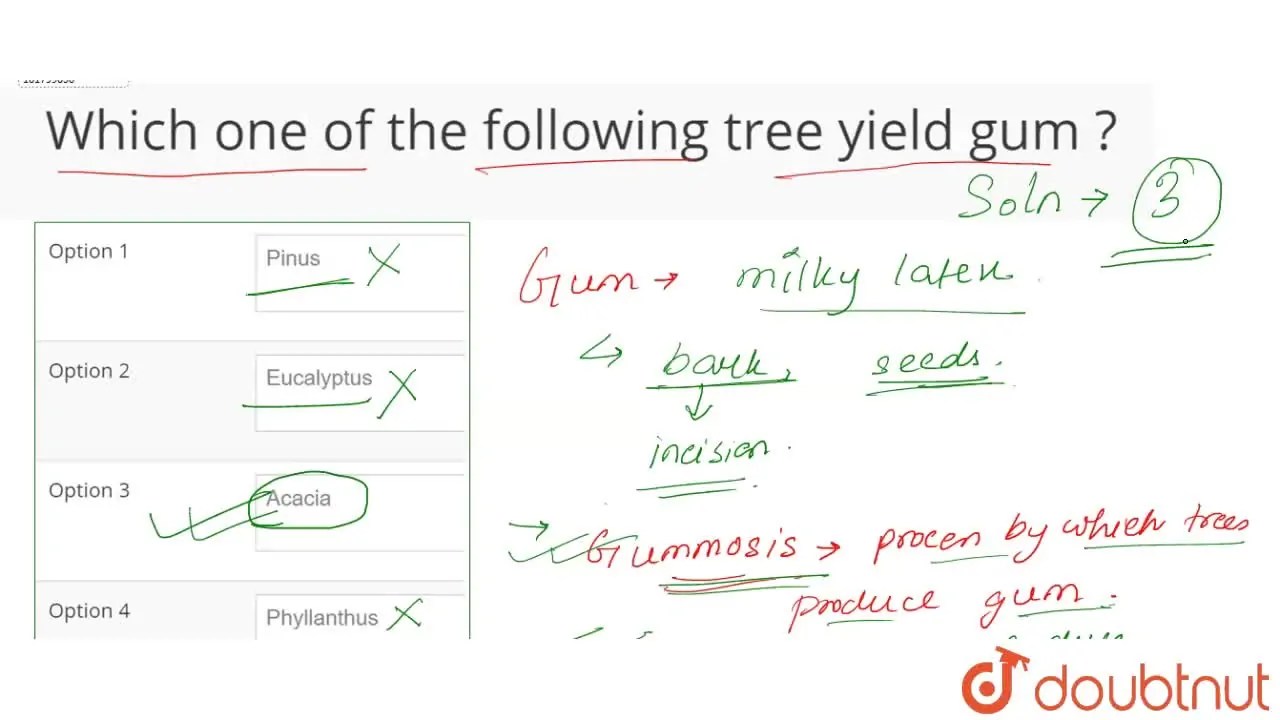 Which one of the following tree yield gum ?
Soln → 3
Option 1 Pinus X
Gum → milky latex
Option 2 Eucalyptus X
↳ bark, seeds.
incision.
Option 3 Acacia
→ Gummosis → process by which trees
produce gum.
Option 4 Phyllanthus X
doubtnut